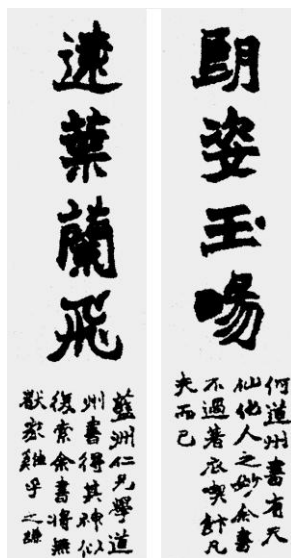 朗姿玉暘
何道州書有天
仙化人之妙余書
不過著衣喫飯凡
夫而已
遠葉蘭飛
藍洲仁兄學道
州書得其神似
復索余書將無
猒家雞乎之謙